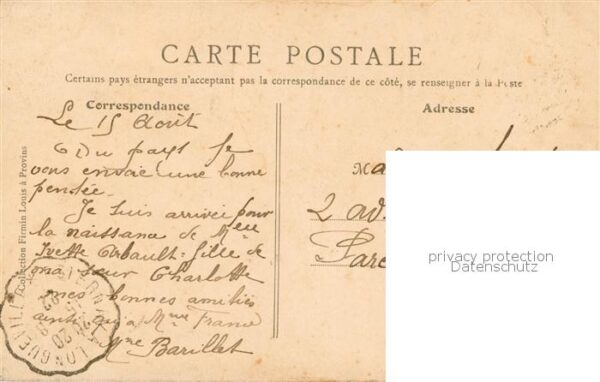 CARTE POSTALE
Certains pays étrangers n'acceptant pas la correspondance de ce côté, se renseigner à la Poste
Correspondance
Adresse
Le 15 Août
Du pays Je
vous envoie une bonne
pensée.
Je suis arrivée pour
la naissance de Melle
Yvette Arbault fille de
ma sœur Charlotte
mes bonnes amitiés
ainsi qu'à Mme France
Mme Barillet
M
2 av
Parc
Collection Firmin Louis à Provins
LONGUEVILLE
privacy protection
Datenschutz